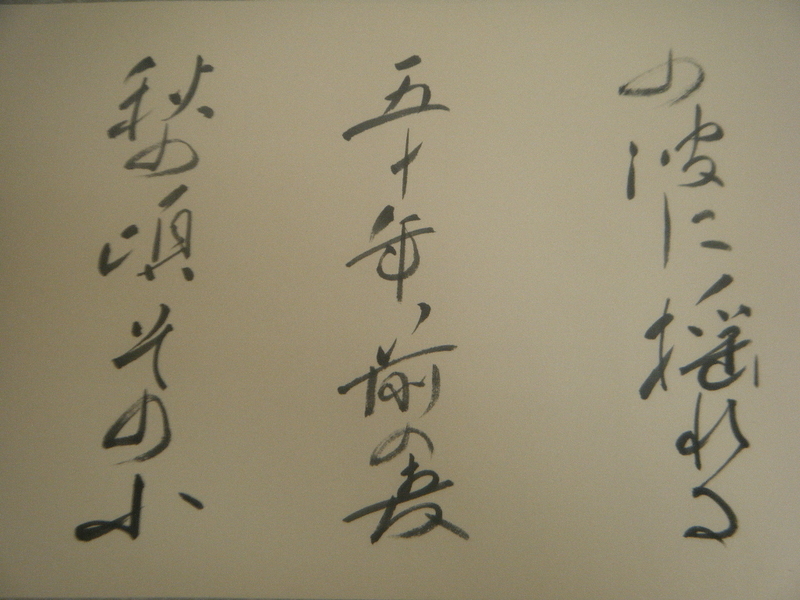 の波に揺れる
五十年前の麦
秋の頃その小